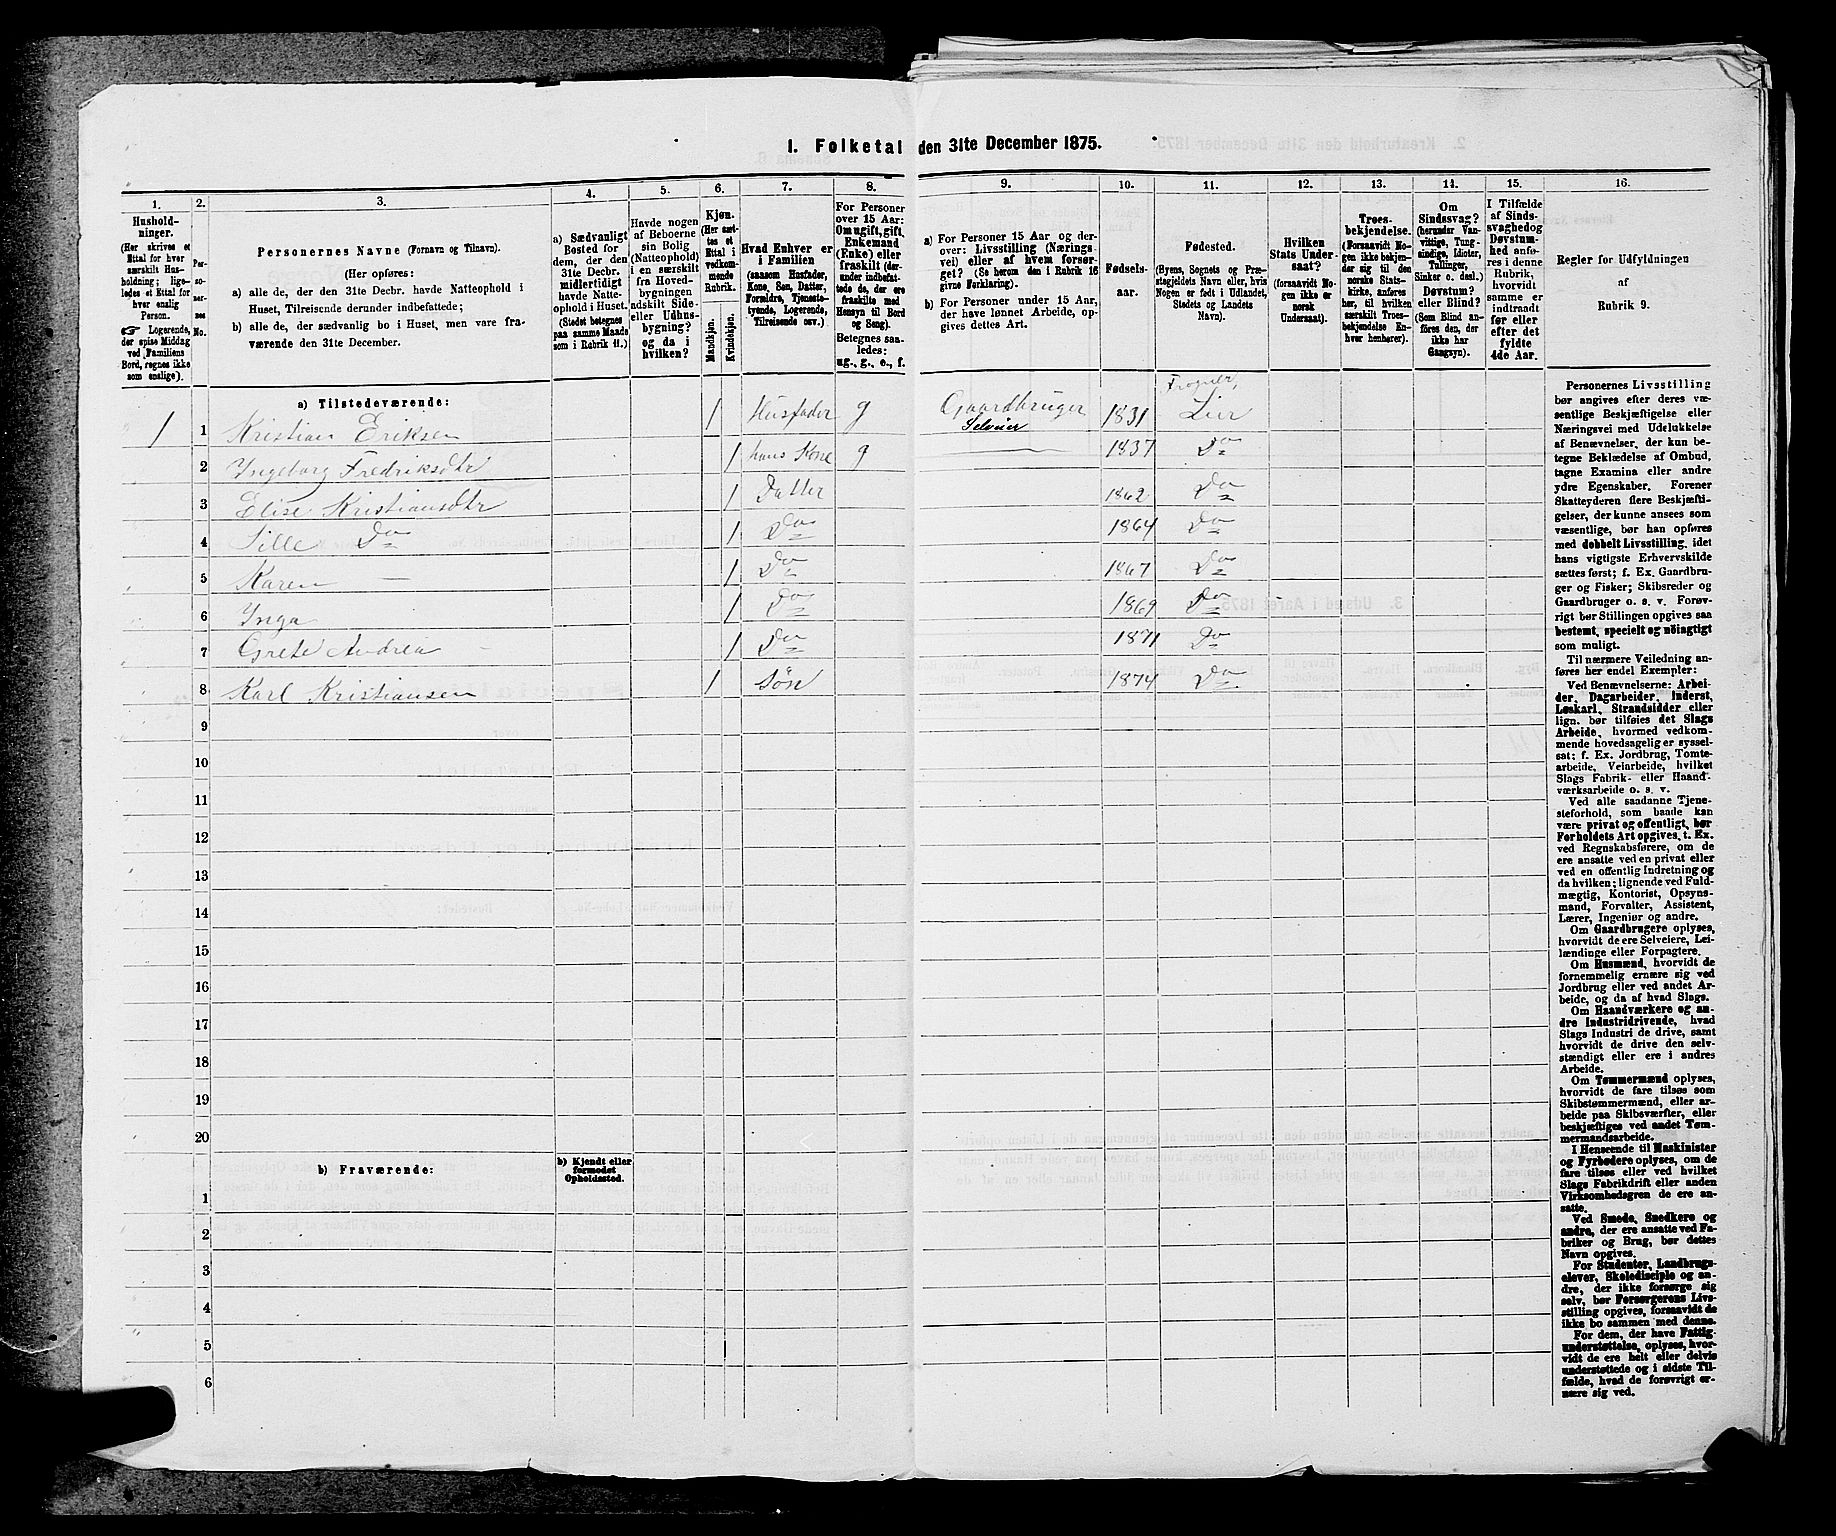 1. Folketal den 31te December 1875.
1.
Hushold-
ninger.
(Her skrives et
Ettal for hver
særskilt Hus-
holdning; lige-
ledes et Ettal for
hver enslig
Person.
☞ Logerende,
der spise Middag
ved Familiens
Bord, regnes ikke
som enslige).
2.
Per-
so-
ner-
nes
No.
3.
Personernes Navne (Fornavn og Tilnavn).
(Her opføres:
a) alle de, der den 31te Decbr. havde Natteophold i
Huset, Tilreisende derunder indbefattede;
b) alle de, der sædvanlig bo i Huset, men vare fra-
værende den 31te December.
4.
a) Sædvanligt
Bosted for
dem, der den
31te Decbr.
midlertidigt
havde Natte-
ophold i Huset.
(Stedet betegnes
paa samme Maade
som i Rubrik 11.)
5.
Havde nogen
af Beboerne
sin Bolig
(Natteophold)
i en særskilt
fra Hoved-
bygningen
adskilt Side-
eller Udhus-
bygning?
og da i
hvilken?
6.
Kjøn.
(Her sæt-
tes et
Ettal i
vedkom-
mende
Rubrik.
Mandkjøn.
Kvindekjøn.
7.
Hvad Enhver er
i Familien
(saasom Husfader,
Kone, Søn, Datter,
Forældre, Tjeneste-
tyende, Logerende,
Tilreisende osv.)
8.
For Personer
over 15 Aar:
Om ugift, gift,
Enkemand
(Enke) eller
fraskilt (der-
under indbefat-
tede de, der ere
fraskilte med
Hensyn til Bord
og Seng).
Betegnes saa-
ledes:
ug., g., e., f.
9.
a) For Personer 15 Aar og der-
over: Livsstilling (Nærings-
vei) eller af hvem forsør-
get? (Se herom den i Rubrik 16
givne Forklaring).
b) For Personer under 15 Aar,
der have lønnet Arbeide, op-
gives dettes Art.
10.
Fødsels-
aar.
11.
Fødested.
(Byens, Sognets og Præ-
stegjeldets Navn eller, hvis
Nogen er født i Udlandet,
Stedets og Landets
Navn).
12.
Hvilken
Stats Under-
saat?
(forsaavidt No-
gen ikke er
norsk
Undersaat).
13.
Troes-
bekjendelse.
(Forsaavidt No-
gen ikke bekjen-
der sig til den
norske Stats-
kirke, anføres
her, til hvilken
særskilt Troes-
bekjendelse En-
hver henhører).
14.
Om
Sindssvag?
(herunder Van-
vittige, Tung-
sindige, Idioter,
Tullinger,
Sinker o. desl.)
Døvstum?
eller Blind?
(Som Blind an-
føres den, der
ikke har
Gangsyn).
15.
I Tilfælde
af Sinds-
svaghed og
Døvstum-
hed anfø-
res i denne
Rubrik,
hvorvidt
samme er
indtraadt
før eller
efter det
fyldte
4de Aar.
16.
Regler for Udfyldningen
af
Rubrik 9.
a) Tilstedeværende:
Frogner,
1 1 Kristian Eriksen 1 Husfader g Gaardbruger 1831 Lier
Selveier
2 Ingeborg Fredriksdtr 1 hans Kone g — 1837 Do
3 Elise Kristiansdtr 1 Datter 1862 Do
4 Sille Do 1 Do 1864 Do
5 Karen — 1 Do 1867 Do
6 Inga 1 Do 1869 Do
7 Grete Andrea - 1 Do 1871 Do
8 Karl Kristiansen 1 Søn 1874 Do
9
10
11
12
13
14
15
16
17
18
19
20
b) Fraværende:
b) Kjendt eller
formodet
Opholdssted.
1
2
3
4
5
6
Personernes Livsstilling
bør angives efter deres væ-
sentlige Beskjæftigelse eller
Næringsvei med Udelukkelse
af Benævnelser, der kun be-
tegne Beklædelse af Ombud,
tagne Examina eller andre
ydre Egenskaber. Forener
Skatteyderen flere Beskjæfti-
gelser, der kunne ansees som
væsentlige, bør han opføres
med dobbelt Livsstilling, idet
hans vigtigste Erhvervskilde
sættes først; f. Ex. Gaardbru-
ger og Fisker; Skibsreder og
Gaardbruger o. s. v. Forøv-
rigt bør Stillingen opgives saa
bestemt, specielt og nøiagtigt
som muligt.
Til nærmere Veiledning an-
føres her endel Exempler:
Ved Benævnelserne: Arbei-
der, Dagarbeider, Inderst,
Løskarl, Strandsidder eller
lign. bør tilføies det Slags
Arbeide, hvormed vedkom-
mende hovedsagelig er syssel-
sat; f. Ex. Jordbrug, Tomte-
arbeide, Veiarbeide, hvilket
Slags Fabrik- eller Haand-
værksarbeide o. s. v.
Ved alle saadanne Tjene-
steforhold, som baade kan
være privat og offentligt, bør
Forholdets Art opgives, t. Ex.
ved Regnskabsførere, om de
ere ansatte ved en privat eller
ved en offentlig Indretning og
da hvilken; lignende ved Fuld-
mægtig, Kontorist, Opsyns-
mand, Forvalter, Assistent,
Lærer, Ingeniør og andre.
Om Gaardbrugere oplyses,
hvorvidt de ere Selveiere, Lei-
lændinge eller Forpagtere.
Om Husmænd, hvorvidt de
fornemmelig ernære sig ved
Jordbrug eller ved andet Ar-
beide, og da af hvad Slags.
Om Haandværkere og an-
dre Industridrivende, hvad
Slags Industri de drive, samt
hvorvidt de drive den selv-
stændigt eller ere i andres
Arbeide.
Om Tømmermænd oplyses,
hvorvidt de fare tilsøs som
Skibstømmermænd, eller ar-
beide paa Skibsværfter, eller
beskjæftiges ved andet Tøm-
mermandsarbeide.
I Henseende til Maskinister
og Fyrbødere oplyses, om de
fare tilsøs eller ved hvilket
Slags Fabrikdrift eller anden
Virksomhedsgren de ere an-
satte.
Ved Smede, Snedkere og
andre, der ere ansatte ved Fa-
briker og Brug, bør dettes
Navn opgives.
For Studenter, Landbrugs-
elever, Skoledisciple og an-
dre, der ikke forsørge sig
selv, bør Forsørgerens Livs-
stilling opgives, forsaavidt de
ikke bo sammen med denne.
For dem, der have Fattig-
understøttelse, oplyses, hvor-
vidt de ere helt eller delvis
understøttede og i sidste Til-
fælde, hvad de forøvrigt er-
nære sig ved.